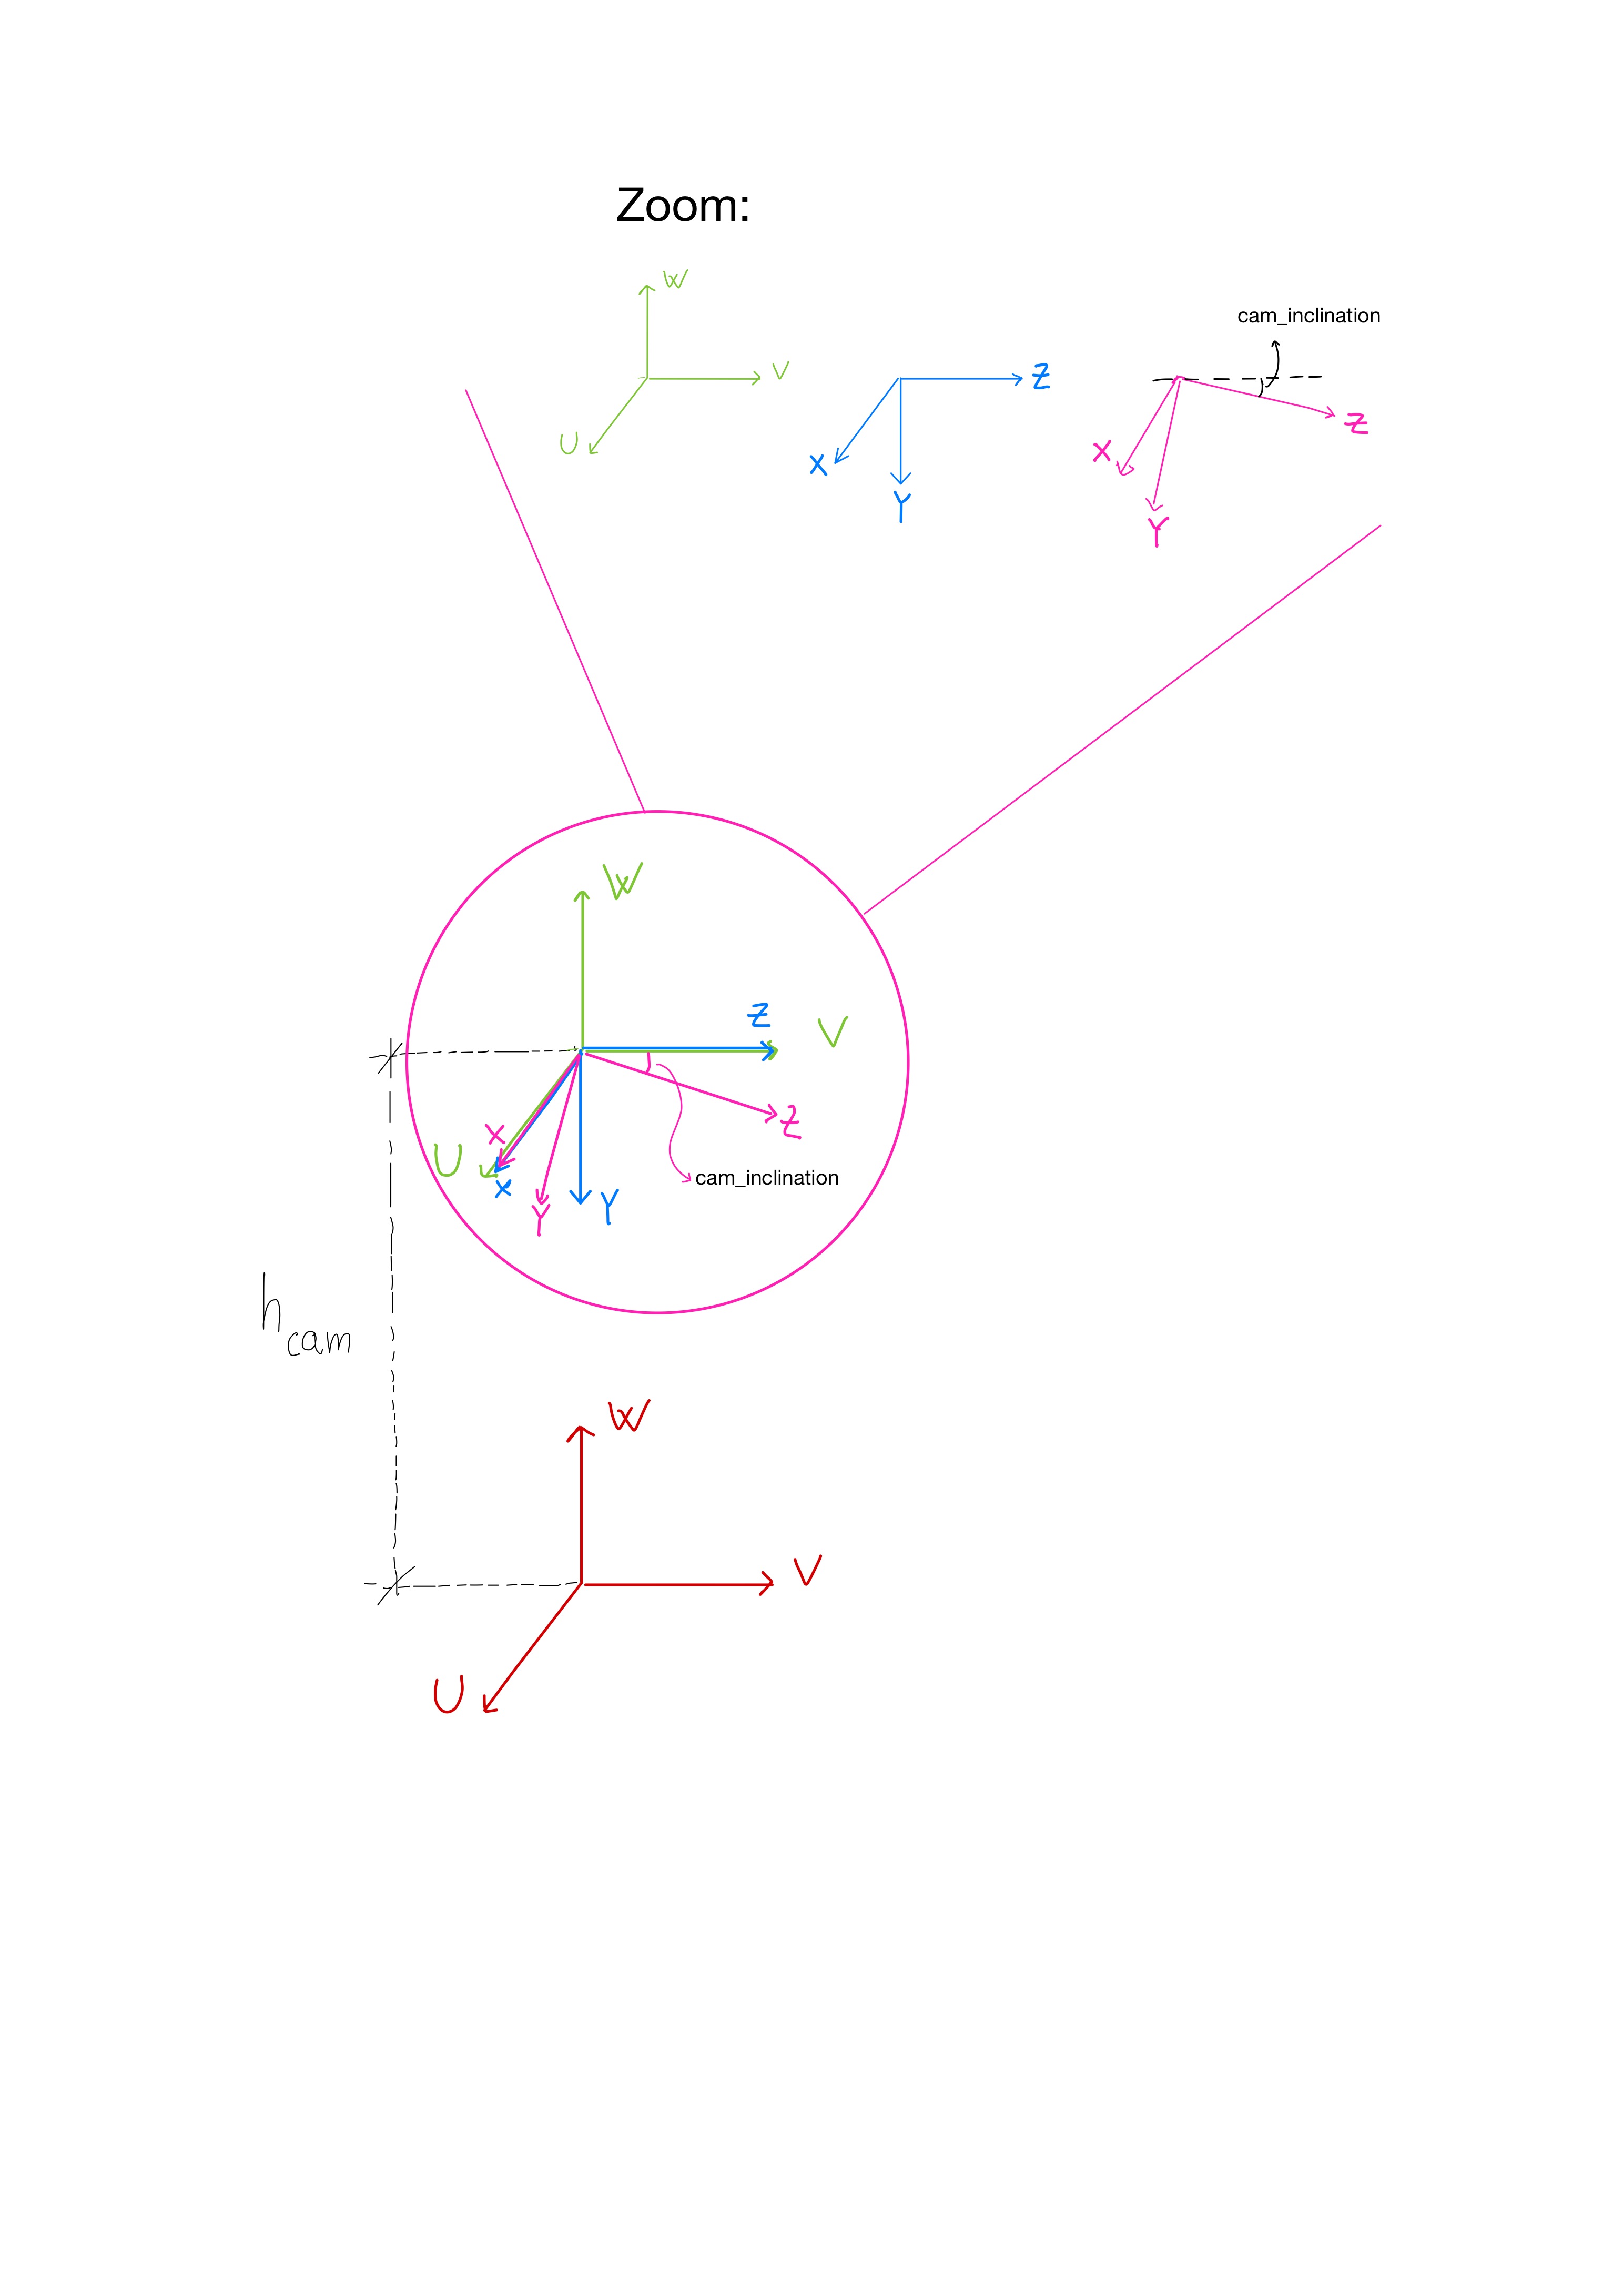 Zoom:
W
V
U
Z
X
Y
cam_inclination
Z
X
Y
W
Z
V
Z
X
U
X
Y
Y
cam_inclination
h cam
W
V
U